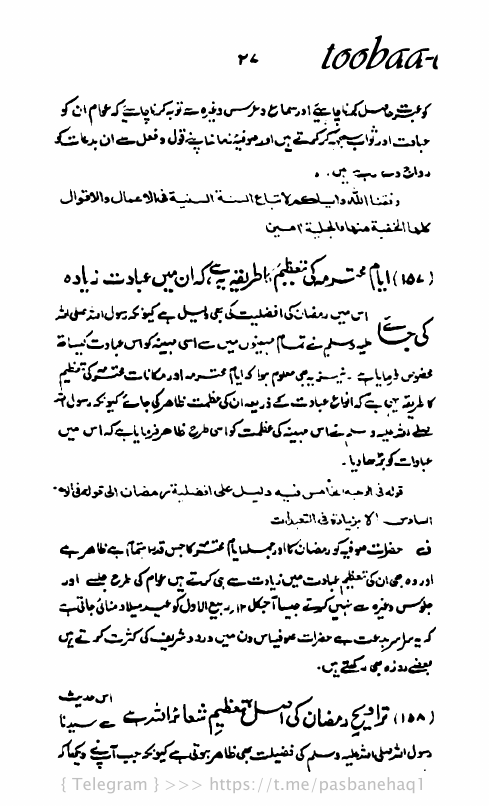 ۲۷
toobaa-
کو عبرت حاصل کرنا چاہیئے اور سماع و عرس وغیرہ سے توبہ کرنا چاہیے کہ عوام ان کو
عبادت اور ثواب سمجھ کر کرتے ہیں اور صوفیہ زمانہ اپنے قول و فعل سے ان بدعات کو
رواج دے رہے ہیں۔
وفقنا الله وایاکم لاتباع السنة السنیة فی الاعمال والاقوال
کلها الخفیة منها والجلیة آمین
(۱۵۷) ایام محترمہ کی تعظیم کا طریقہ یہ ہے کہ ان میں عبادت زیادہ
کی جائے
اس میں رمضان کی افضلیت کی بھی دلیل ہے کیونکہ رسول اللہ صلی اللہ
علیہ وسلم نے تمام مہینوں میں سے اسی مہینہ کو اس عبادت کیساتھ
مخصوص فرمایا ہے ۔ نیز یہ بھی معلوم ہوا کہ ایام محترمہ اور مکانات محترمہ کی تعظیم
کا طریقہ یہی ہے کہ انواع عبادت کے ذریعہ ان کی عظمت ظاہر کی جائے کیونکہ رسول اللہ
صلی اللہ علیہ وسلم نے اس مہینہ کی عظمت کو اسی طرح ظاہر فرمایا ہے کہ اس میں
عبادات کو بڑھا دیا۔
قوله فی الوجه الخامس فیه دلیل علی افضلیة رمضان الی قوله فی الوجه
السادس الا بزیادة فی التعبدات
ف حضرات صوفیہ کو رمضان کا اور جملہ ایام محترمہ کا جس قدر اہتمام ہے ظاہر ہے
اور وہ بھی ان کی تعظیم عبادت میں زیادت سے ہی کرتے ہیں عوام کی طرح جلسے اور
جلوس وغیرہ سے نہیں کرتے جیسا آجکل ۱۲ ربیع الاول کو عید میلاد منائی جاتی ہے
کہ یہ سراسر بدعت ہے حضرات صوفیہ اس دن میں درود شریف کی کثرت کرتے ہیں
بعضے روزہ بھی رکھتے ہیں۔
(۱۵۸) تراویح رمضان کی اصل تعظیم شعائر اللہ ہے
اس حدیث
سے سیدنا
رسول اللہ صلی اللہ علیہ وسلم کی فضیلت بھی ظاہر ہوتی ہے کیونکہ جب آپ نے دیکھا کہ
{ Telegram } >>> https://t.me/pasbanehaq1